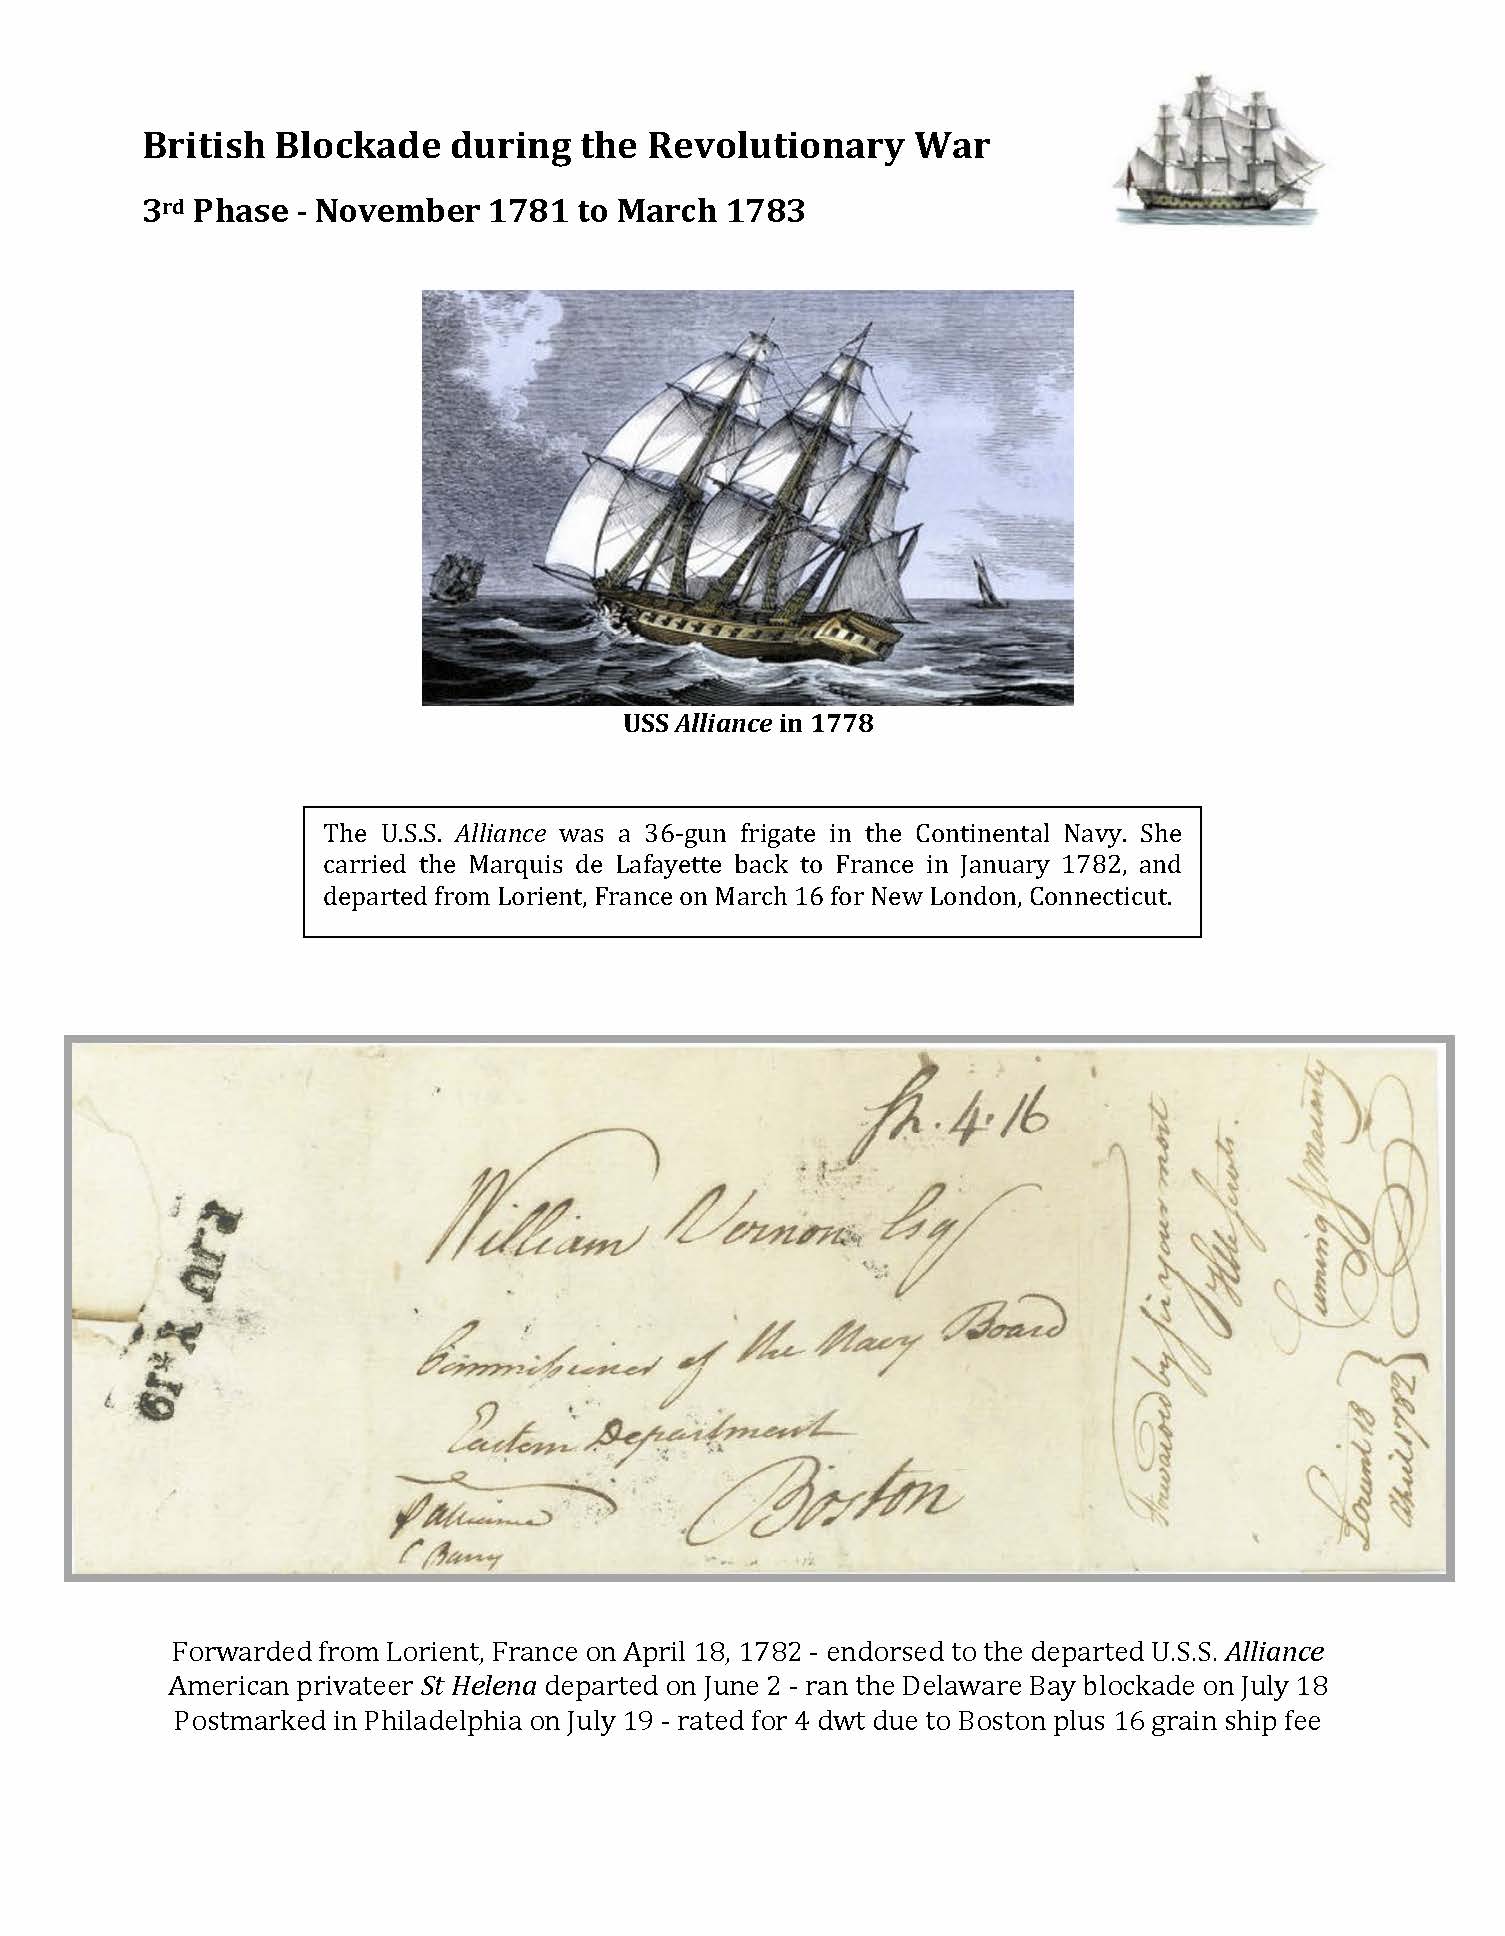 British Blockade during the Revolutionary War
3rd Phase - November 1781 to March 1783
USS Alliance in 1778
The U.S.S. Alliance was a 36-gun frigate in the Continental Navy. She
carried the Marquis de Lafayette back to France in January 1782, and
departed from Lorient, France on March 16 for New London, Connecticut.
Sh. 4.16
William Vernon Esqr
Commissioner of the Navy Board
Eastern Department
Boston
P Alliance
C Barry
IY*19
Forwarded by Sir your most
Hble Servts.
Lorient 18
April 1782
Forwarded from Lorient, France on April 18, 1782 - endorsed to the departed U.S.S. Alliance
American privateer St Helena departed on June 2 - ran the Delaware Bay blockade on July 18
Postmarked in Philadelphia on July 19 - rated for 4 dwt due to Boston plus 16 grain ship fee